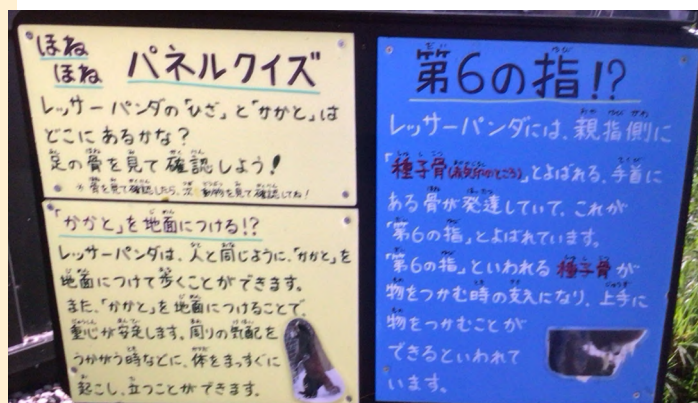 ほね
ほね パネルクイズ
レッサーパンダの「ひざ」と「かかと」は
どこにあるかな?
足の骨を見て確認しよう!
※骨を見て確認したら、次に動物を見て確認してね!
「かかと」を地面につける!?
レッサーパンダは、人と同じように、「かかと」を
地面につけて歩くことができます。
また、「かかと」を地面につけることで、
重心が安定します。周りの気配を
うかがう時などに、体をまっすぐに
起こし、立つことができます。
第6の指!?
レッサーパンダには、親指側に
「種子骨(赤矢印のところ)」とよばれる、手首に
ある骨が発達していて、これが
「第6の指」とよばれています。
「第6の指」といわれる種子骨が
物をつかむ時の支えになり、上手に
物をつかむことが
できるといわれて
います。